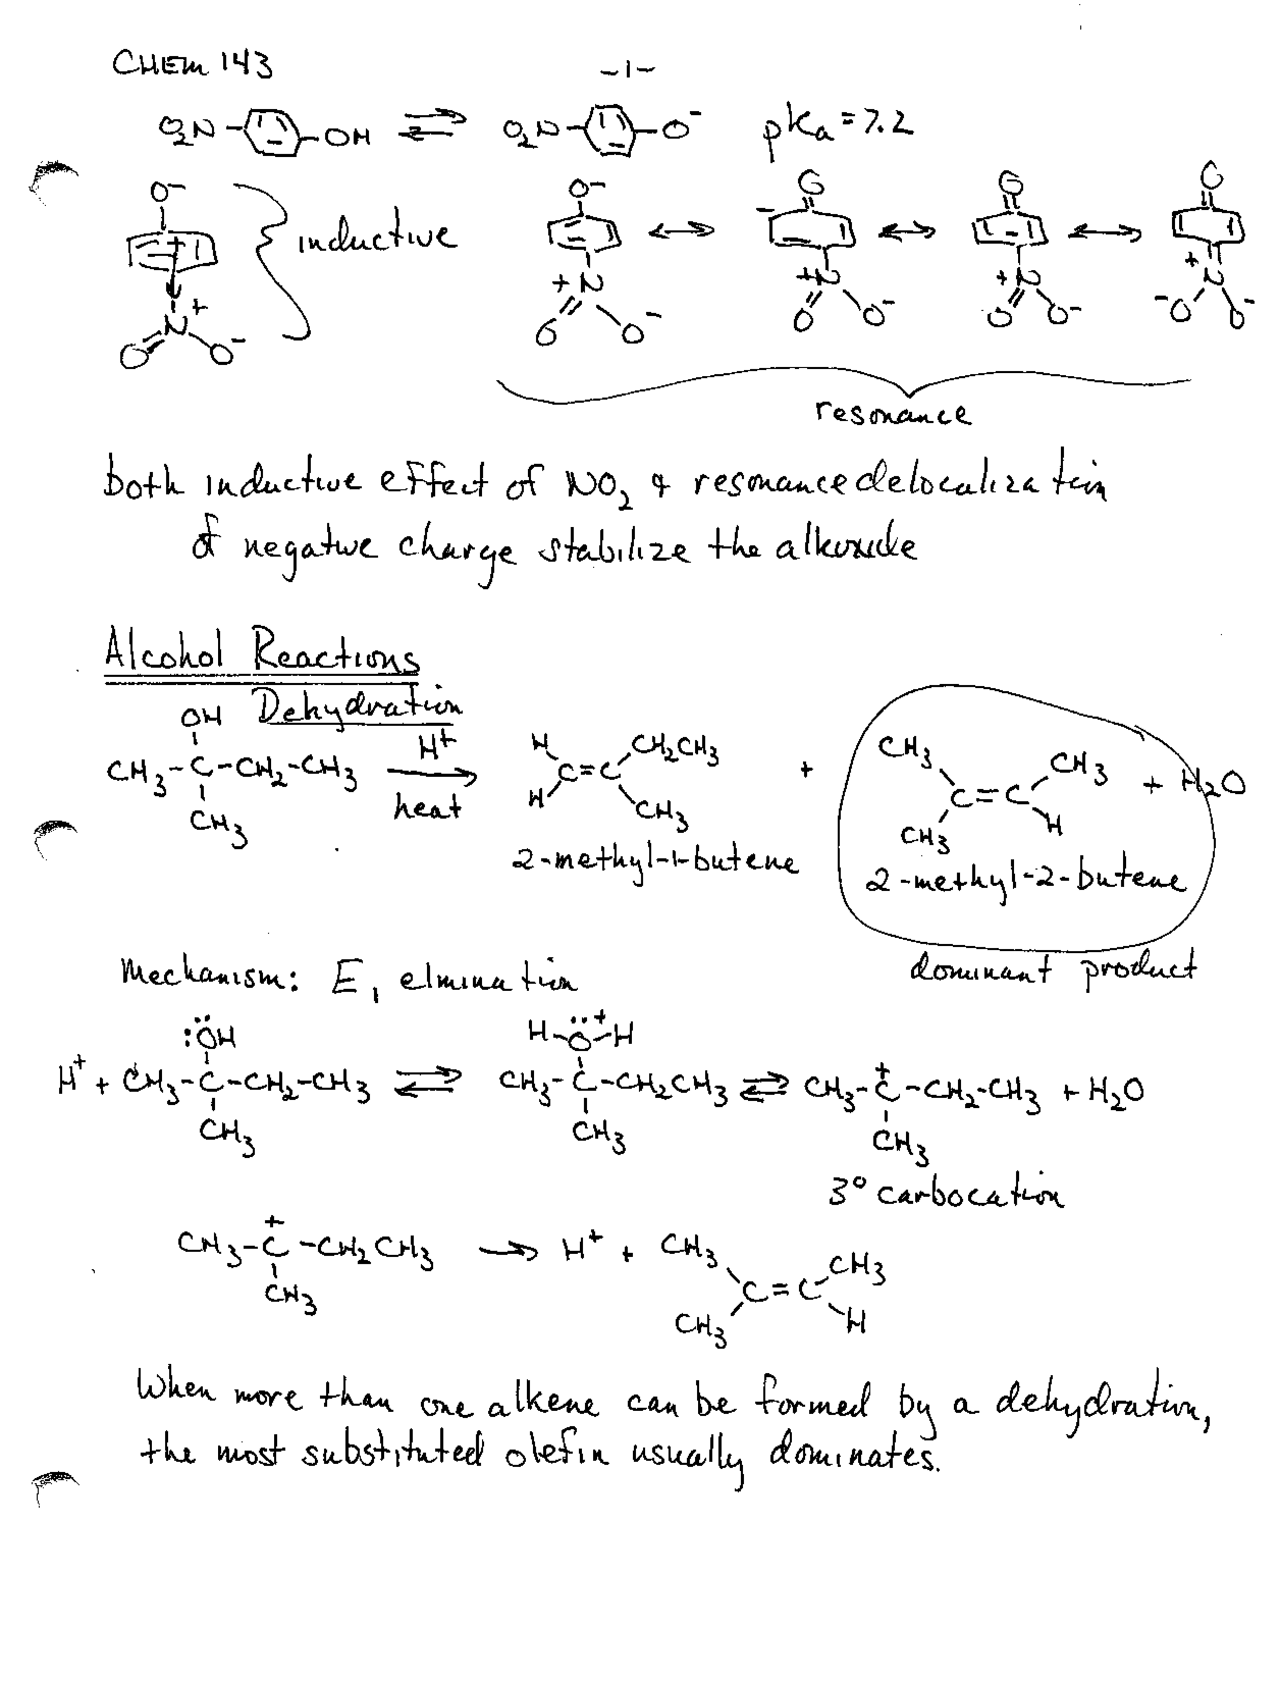 CHEM 143
-1-
O₂N- -OH ⇌ O₂N- -O⁻ pKa = 7.2
O⁻ O⁻ O O O
inductive ↔ ↔ ↔
N⁺ +N +N +N +N
O O⁻ O O⁻ O O⁻ O O⁻ ⁻O O⁻
resonance
both inductive effect of NO₂ & resonance delocalization
of negative charge stabilize the alkoxide
Alcohol Reactions
Dehydration
OH H⁺ H CH₂CH₃ CH₃ CH₃
CH₃-C-CH₂-CH₃ → C=C + C=C + H₂O
CH₃ heat H CH₃ CH₃ H
2-methyl-1-butene 2-methyl-2-butene
dominant product
Mechanism: E₁ elmination
:ÖH H-Ö⁺-H
H⁺ + CH₃-C-CH₂-CH₃ ⇌ CH₃-C-CH₂CH₃ ⇌ CH₃-C⁺-CH₂-CH₃ + H₂O
CH₃ CH₃ CH₃
3° carbocation
CH₃-C⁺-CH₂CH₃ → H⁺ + CH₃ CH₃
CH₃ C=C
CH₃ H
When more than one alkene can be formed by a dehydration,
the most substituted olefin usually dominates.